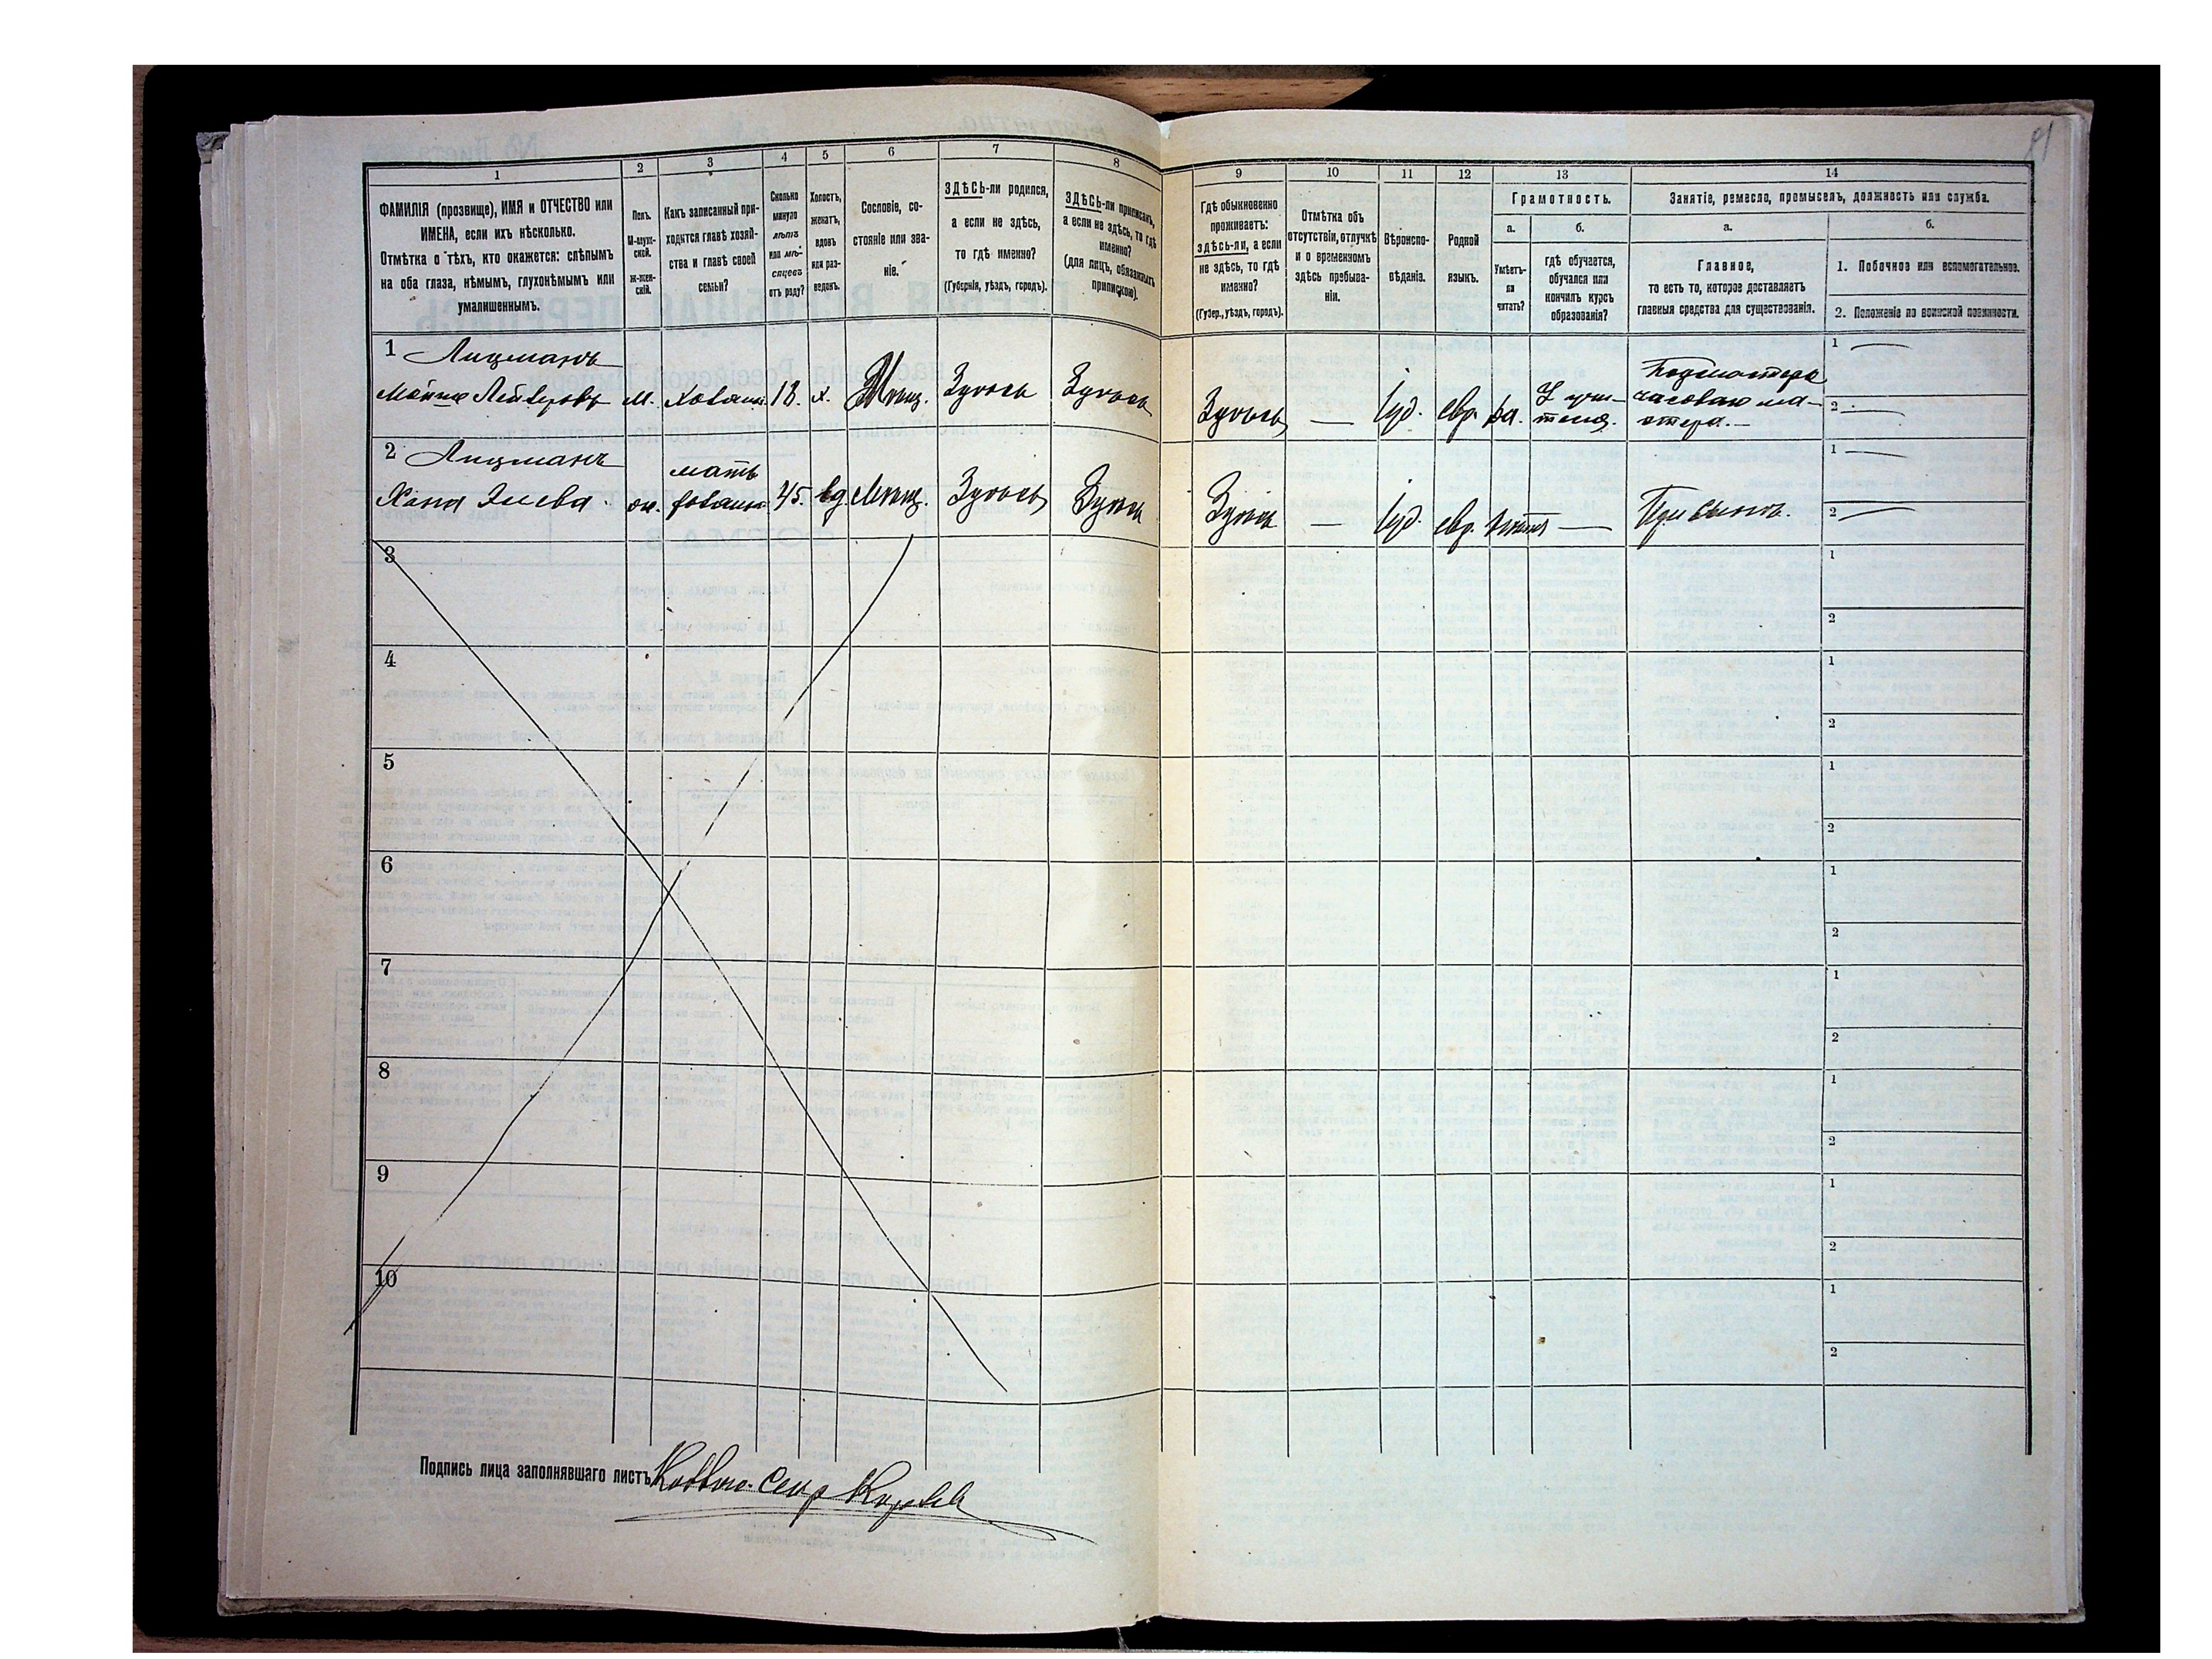 1 2 3 4 5 6 7 8 9 10 11 12 13 14
ФАМИЛІЯ (прозвище), ИМЯ и ОТЧЕСТВО или
ИМЕНА, если ихъ нѣсколько.
Отмѣтка о тѣхъ, кто окажется: слѣпымъ
на оба глаза, нѣмымъ, глухонѣмымъ или
умалишеннымъ.
Полъ.
М-муж-
ской.
ж-жен-
скій.
Какъ записанный при-
ходится главѣ хозяй-
ства и главѣ своей
семьи?
Сколько
минуло
лѣтъ
или мѣ-
сяцевъ
отъ роду?
Холостъ,
женатъ,
вдовъ
или раз-
веденъ.
Сословіе, со-
стояніе или зва-
ніе.
ЗДѢСЬ-ли родился,
а если не здѣсь,
то гдѣ именно?
(Губернія, уѣздъ, городъ).
ЗДѢСЬ-ли приписанъ,
а если не здѣсь, то гдѣ
именно?
(для лицъ, обязанныхъ
припискою).
Гдѣ обыкновенно
проживаетъ:
здѣсь-ли, а если
не здѣсь, то гдѣ
именно?
(Губер., уѣздъ, городъ).
Отмѣтка объ
отсутствіи, отлучкѣ
и о временномъ
здѣсь пребыва-
ніи.
Вѣроиспо-
вѣданіе.
Родной
языкъ.
Грамотность.
а.
Умѣетъ-
ли
читать?
б.
гдѣ обучается,
обучался или
кончилъ курсъ
образованія?
Занятіе, ремесло, промыселъ, должность или служба.
а.
Главное,
то есть то, которое доставляетъ
главныя средства для существованія.
б.
1. Побочное или вспомогательное.
2. Положеніе по воинской повинности.
1 Лицманъ
Мойше Лейзеровъ М. хозяинъ 18. х. Мѣщ. Здѣсь Здѣсь Здѣсь — Іуд. евр. да. У учи-
теля.
Подмастерье
часоваго ма-
стера.—
1 —
2 —
2 Лицманъ
Хана ж. мать
хозяина 45. вд. Мѣщ. Здѣсь Здѣсь Здѣсь — Іуд. евр. нѣтъ — При сынѣ.
1 —
2 —
3 1
2
4 1
2
5 1
2
6 1
2
7 1
2
8 1
2
9 1
2
10 1
2
Подпись лица заполнявшаго листъ